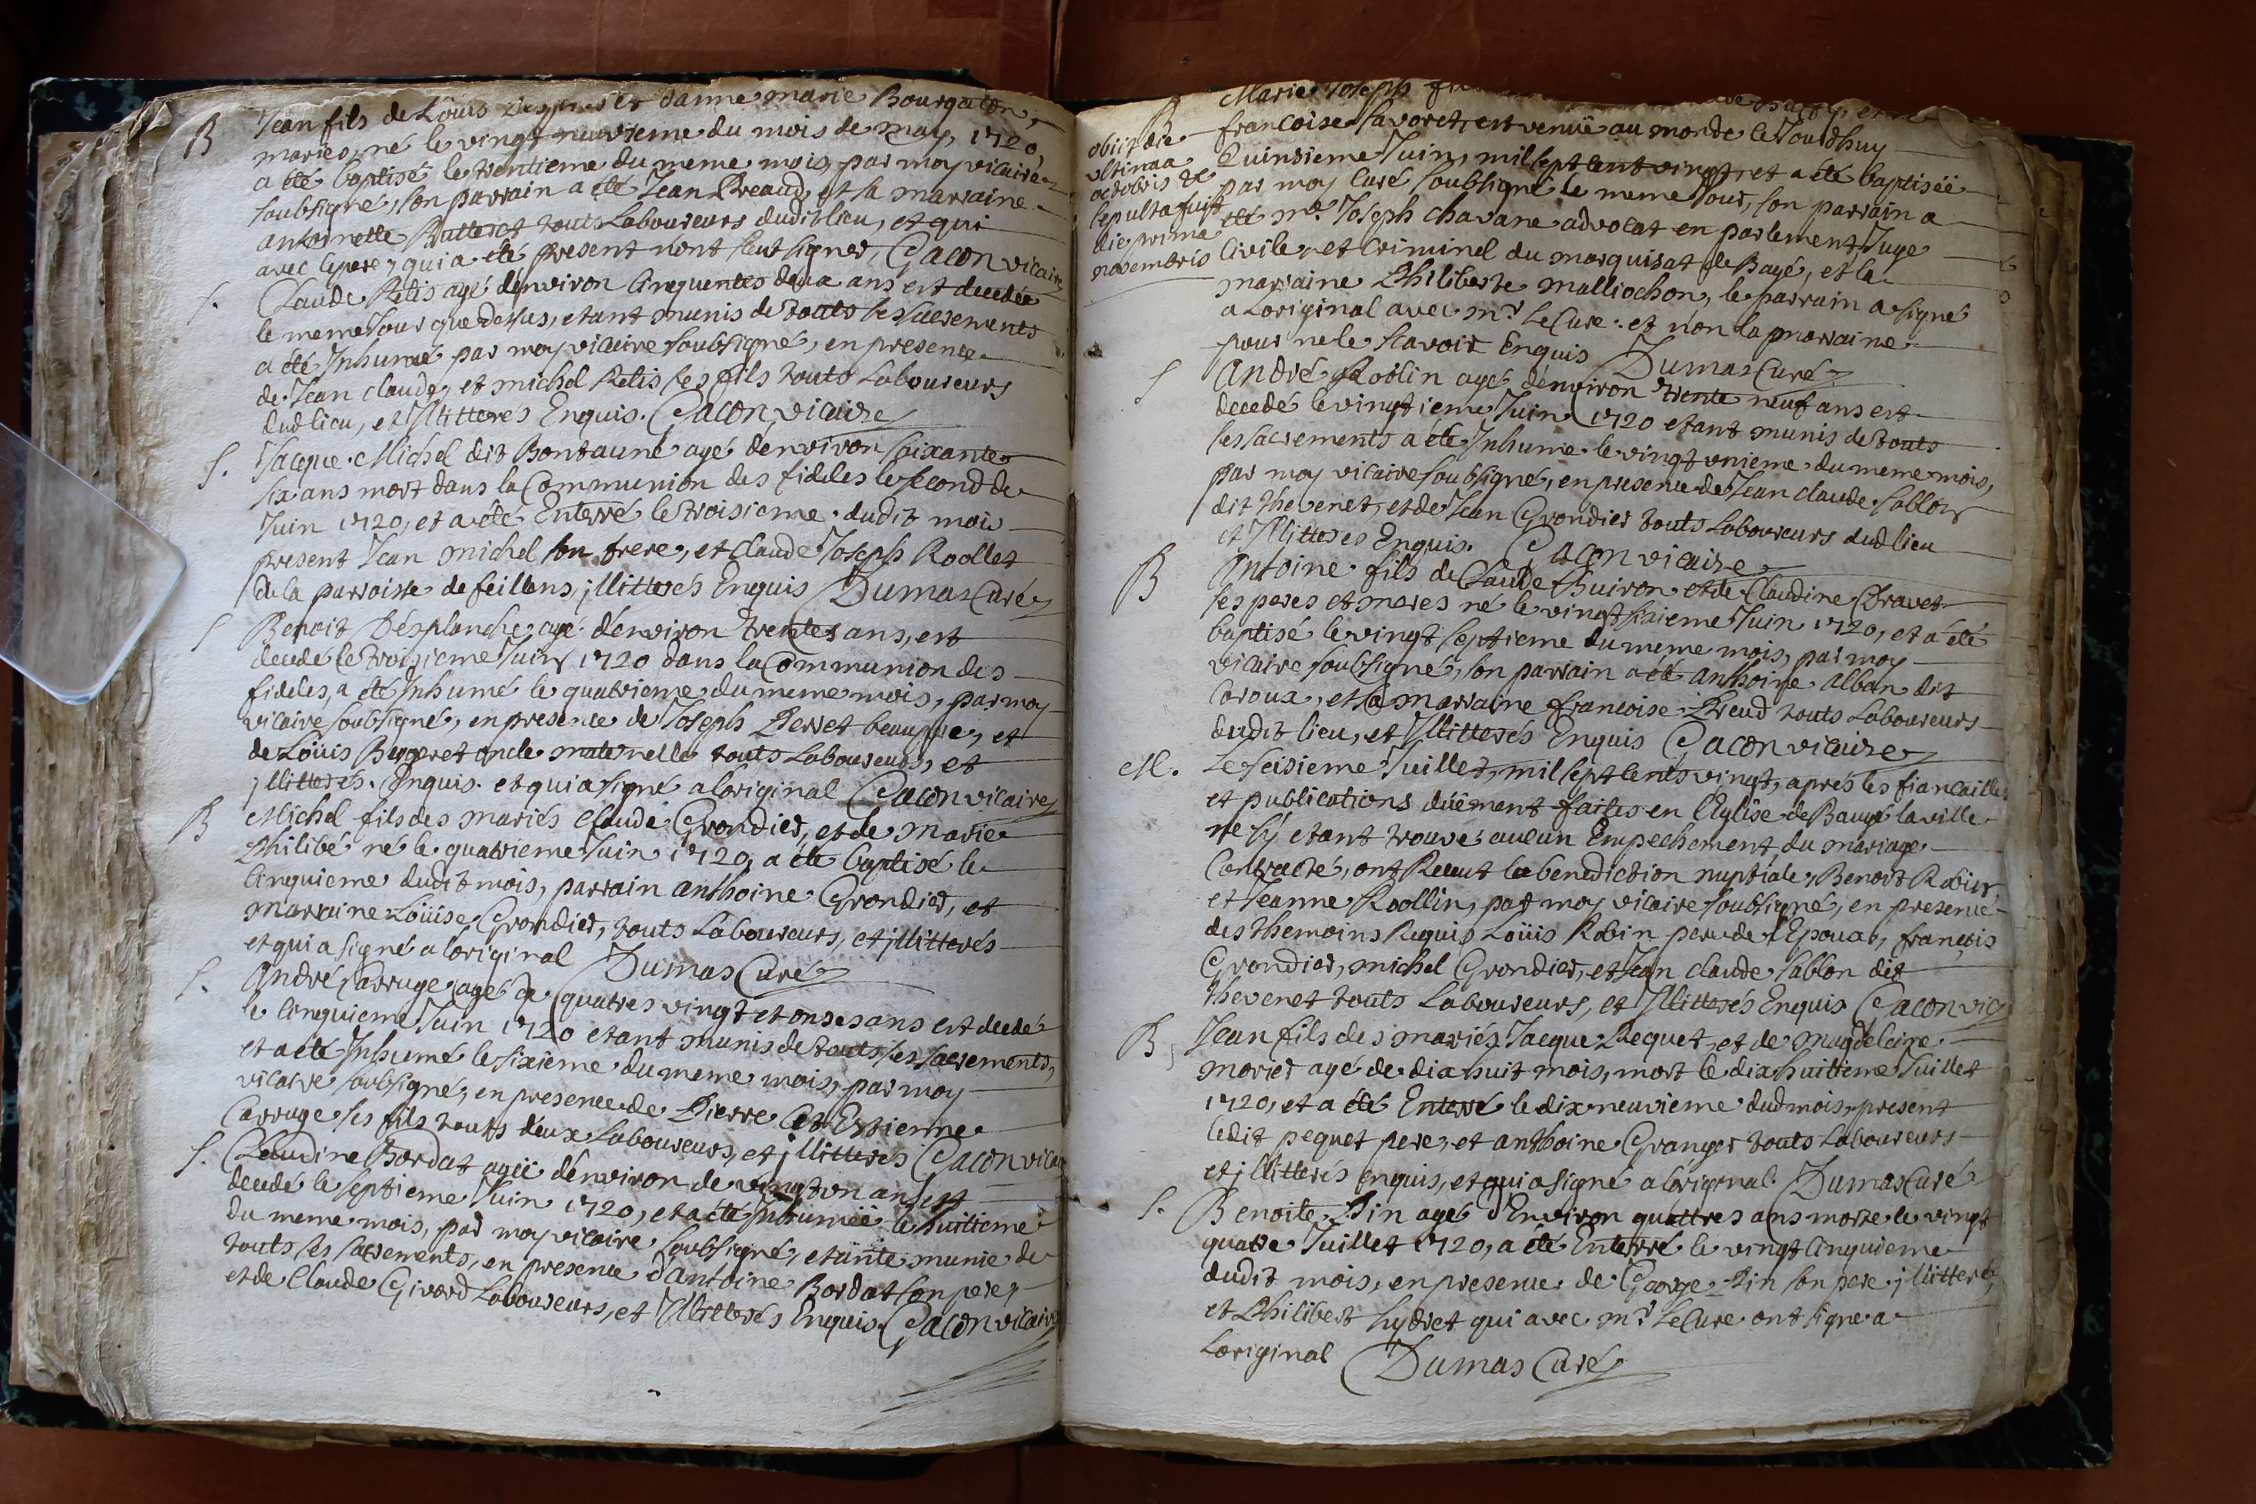 B
Jean fils de Loüis et danne marie Bourgalon,
mariés, né le vingt neuvieme du mois de may, 1720,
a été baptisé le trentieme du meme mois, par moy vicaire
soubsigné, son parrain a été Jean Breaud, et sa marraine
antoinette touts Laboureurs dudit lieu, et qui
avec le pere, qui a été present nont sceut signer, Gacon vicaire
S.
Claude Relis agé denviron Cinquentes deux ans est decedée
le meme Jour que dessus, etant munis de touts ses sacrements
a été Inhumé par moy vicaire soubsigné, en presence
de Jean claude, et michel Relis ses fils touts Laboureurs
dudlieu, et Illitterés Enquis. Gacon vicaire
S.
Jacque Michel dit Bontauné agé denviron soixante
six ans mort dans la Communion des fideles le second de
Juin 1720, et a été Enterré le troisieme dudit mois
present Jean michel son frere, et Claude Joseph Roollet
de la parroisse de feillens, jllitterés Enquis Dumas Curé
S
Benoit Désplanche agé d'environ trentes ans, est
decedé le troisieme Juin 1720 dans la Communion des
fideles, a été Inhumé le quatrieme du meme mois, par moy
vicaire soubsigné, en presence de Joseph Perret beaupere, et
de Loüis Bergeret oncle maternelle touts Laboureurs, et
jllitterés. Enquis. et qui a signé a loriginal Gacon vicaire
B
Michel fils des mariés Claude Grondier, et de marie
Philibé né le quatrieme Juin 1720, a été baptisé le
Cinquieme dudit mois, parrain anthoine Grondier, et
marraine Loüise Grondier, touts Laboureurs, et jllitterés
et qui a signé a loriginal Dumas Curé
S.
André Carruge agé de quatres vingt et onses ans est decedé
le Cinquieme Juin 1720 etant munis de touts ses sacrements,
et a été Inhumé le sixieme du meme mois, par moy
vicaire soubsigné, en presence de Pierre et Estienne
Carruge ses fils touts deux Laboureurs, et jllitterés Gacon vicaire
S.
Claudine Bordat ageë d'environ de vingt un ans est
decedé le septieme Juin 1720, et a été Inhumeë le huitieme
du meme mois, par moy vicaire soubsigné, etante munie de
touts ses sacrements, en presence d'Antoine Bordat son pere,
et de Claude Girord Laboureurs, et Illitterés Enquis. Gacon vicaire
B
Marie Joseph
francoise Favoret, est venuë au monde le Jourdhuy
Quinsieme Juin, mil sept cent vingt, et a été baptiseë
par moy Curé soubsigné le meme Jour, son parrain a
été me. Joseph chavane advocat en parlement Juge
Civile, et Criminel du marquisat de Bagé, et la
marraine Philiberte malliochon, le parrain a signé
a Loriginal avec mr. Le Curé. et non la marraine
pour ne le scavoir Enquis Dumas Curé
obiit die
ultima
octobris &
sepulta fuit
die prima
novembris
S
André Roblin agé d'environ trente neuf ans est
decedé le vingtieme Juin 1720 etant munis de touts
ses sacrements a été Inhumé le vingt unieme du meme mois,
par moy vicaire soubsigné, en presence de Jean claude Sablon
dit thevenet, et de Jean Grondier touts Laboureurs dudlieu
et Illitterés Enquis. Gacon vicaire
B
Antoine fils de Claude Thuiron et de Claudine Dravet
ses peres et meres né le vingt sixieme Juin 1720, et a été
baptisé le vingt septieme du meme mois, par moy
vicaire soubsigné, son parrain a été anthoine alban dit
Coroux, et sa marraine francoise Preud touts Laboureurs
dudit lieu, et Illitterés Enquis Gacon vicaire
M.
Le seisieme Juillet, mil sept Cents vingt, aprés les fiancailles
et publications düement faites en l'Eglise de Baugé la ville
ne sÿ etant trouvé aucun Empechement du mariage
Contracté, ont Receut la benediction nuptiale, Benoit Robin
et Jeanne Roollin, par moy vicaire soubsigné, en presence
des themoins Requis Loüis Robin pere de l'Epoux, françois
Grondier, michel Grondier, et Jean claude Sablon dit
thevenet touts Laboureurs, et Illitterés Enquis Gacon vic
B
Jean fils des mariés Jacque Pequet, et de magdeleine
morier agé de dix huit mois, mort le dix huittieme Juillet
1720, et a été Enterré le dix neuvieme dudmois, present
ledit pequet pere, et anthoine Granger touts Laboureurs
et jllitterés Enquis, et qui a signé a loriginal. Dumas Curé
S.
Benoite Pin agé d'Environ quattres ans morte le vingt
quatre Juillet 1720, a été Enterré le vingt Cinquieme
dudit mois, en presence de George Pin son pere jllitteré,
et Philibert Lydret qui avec mr. Le Curé ont signé a
Loriginal Dumas Curé